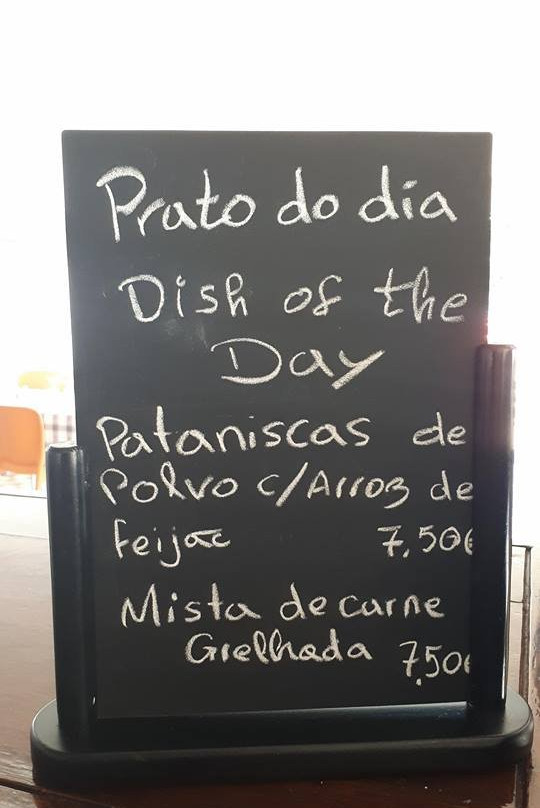 Prato do dia
Dish of the
Day
Pataniscas de
Polvo c/Arroz de
feijao 7,50€
Mista de carne
Grelhada 7,50€